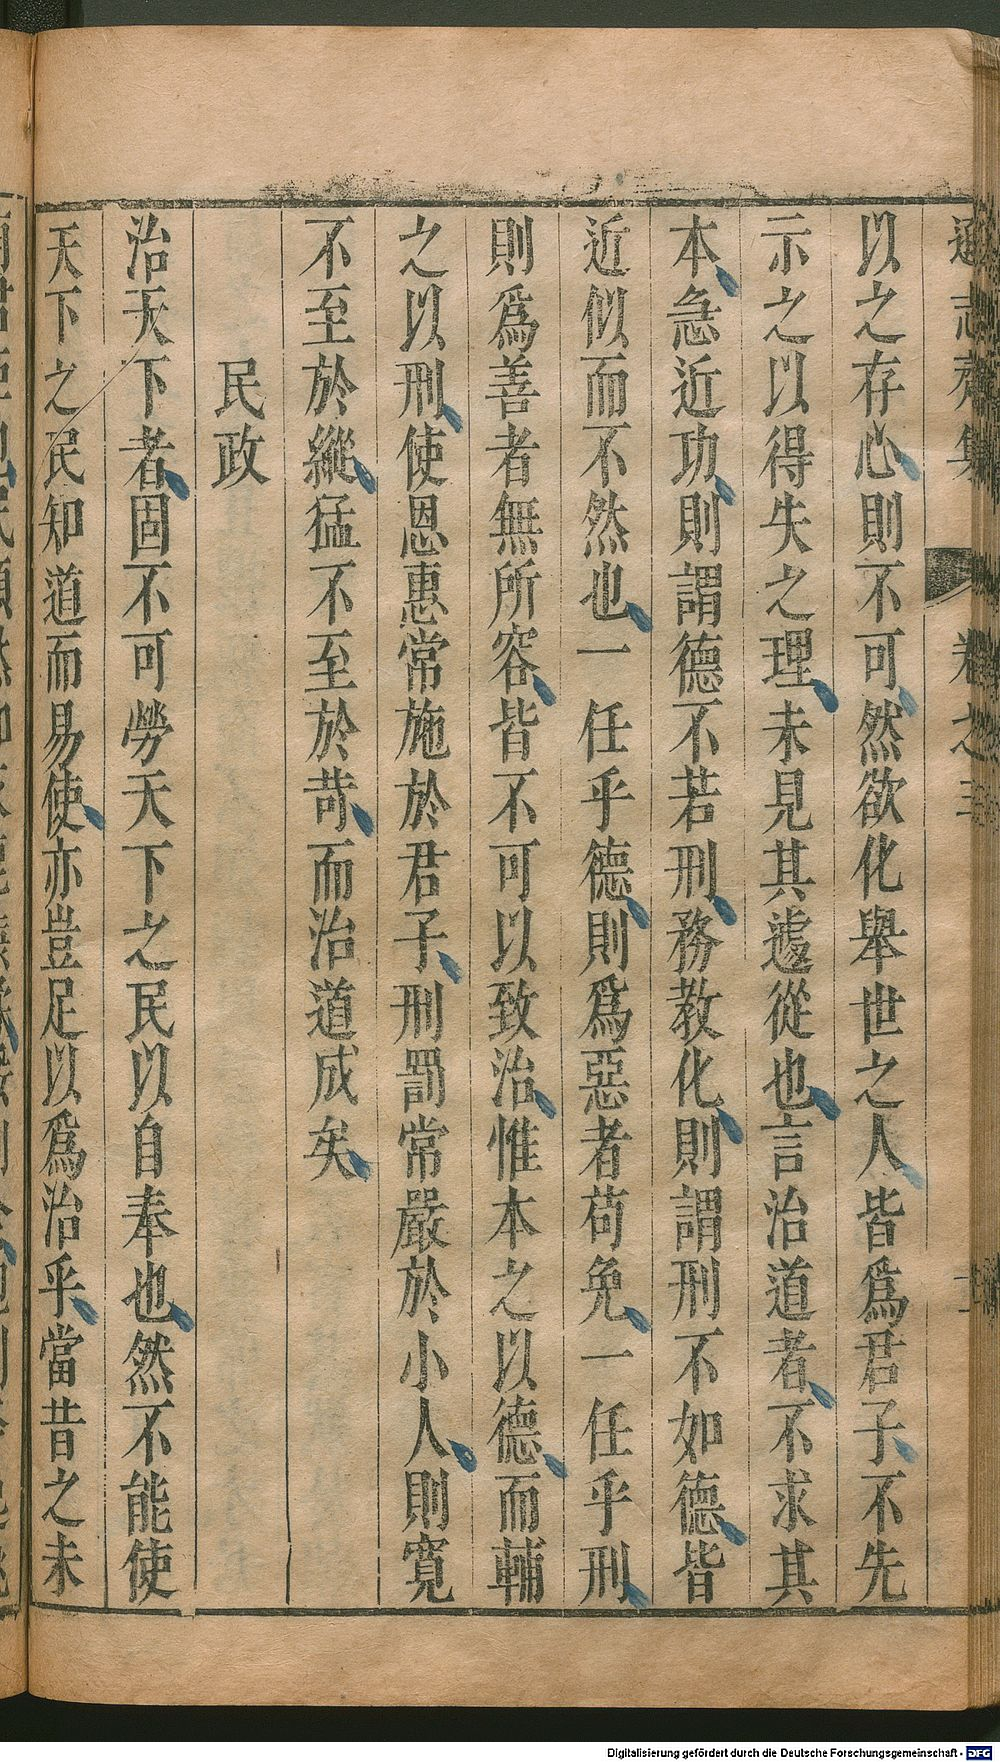 遜志齋集　卷之三
以之存心則不可然欲化舉世之人皆爲君子不先
示之以得失之理未見其遽從也言治道者不求其
本急近功則謂德不若刑務教化則謂刑不如德皆
近似而不然也一任乎德則爲惡者苟免一任乎刑
則爲善者無所容皆不可以致治惟本之以德而輔
之以刑使恩惠常施於君子刑罰常嚴於小人則寬
不至於縱猛不至於苛而治道成矣
民政
治天下者固不可勞天下之民以自奉也然不能使
天下之民知道而易使亦豈足以爲治乎當昔之未
Digitalisierung gefördert durch die Deutsche Forschungsgemeinschaft - DFG